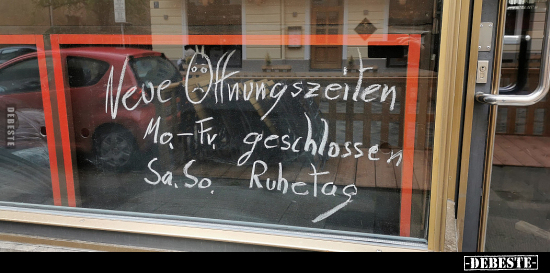 Neue Öffnungszeiten
Mo.-Fr. geschlossen
Sa. So. Ruhetag
DEBESTE
-DEBESTE-